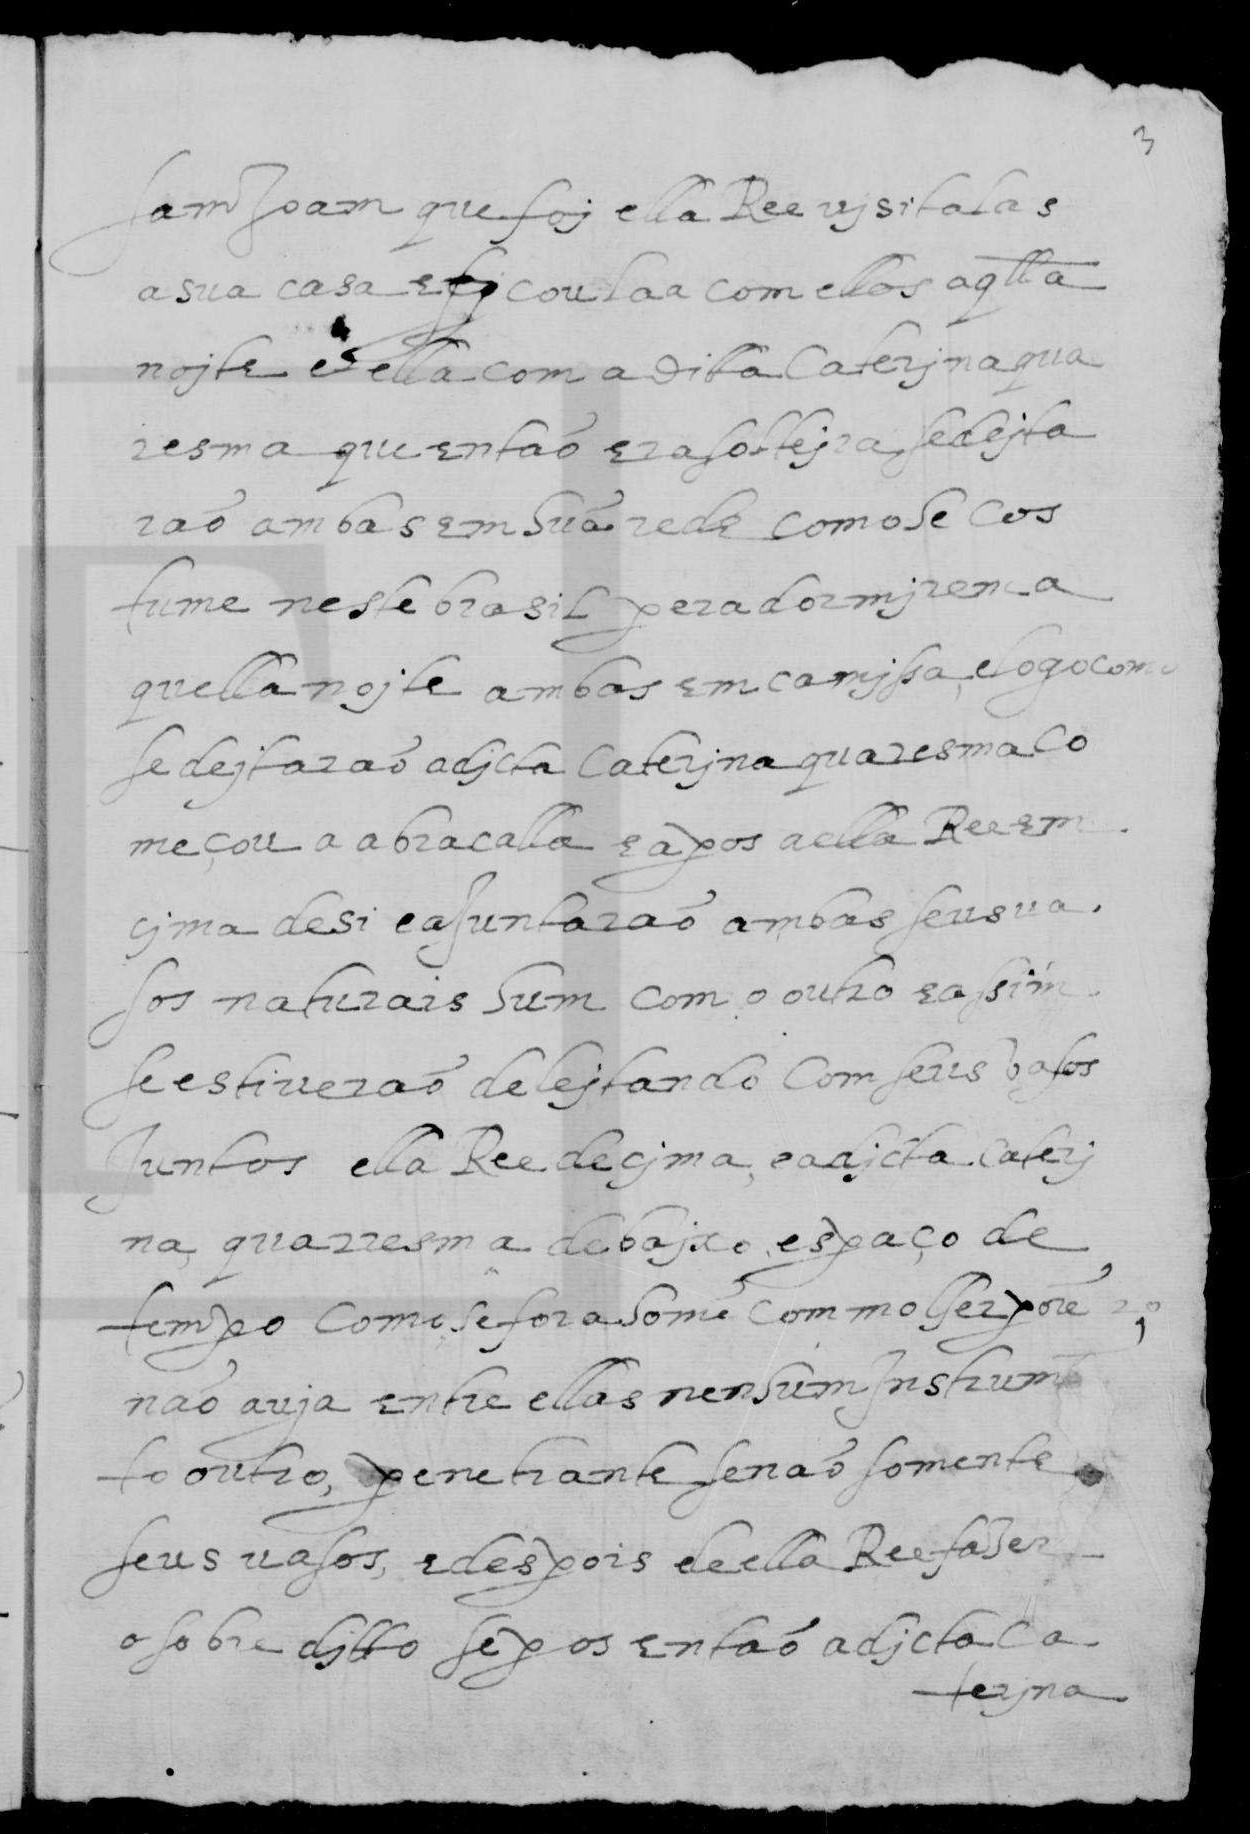 3
sam Joam que foj ella Ree ujsitalas
a sua casa e fjcou laa com ellas aqlla
nojte e ella com a ditta Caterjna qua
resma que então era soltejra se dejta
rão ambas em hũa rede como se cos
tume neste brasil pera dormjrem a
quella nojte ambas em camjssa, e logo como
se dejtarão a djcta Caterjna quaresma co
meçou a abracalla e a pos a ella Ree em
cjma de si e aJuntarão ambas seus ua
sos naturais hum com o outro e assim
se estiuerão delejtando com seus vasos
Juntos ella Ree de cjma, e a djcta Caterj
na, quarresma debajxo, espaço de
tempo como se fora home com molher porẽ
não auja entre ellas nenhum Jnstrumẽ
to outro, penetrante senão somente
seus uasos, e despois de ella Ree faser
o sobre djtto se pos então a djcta Ca
terjna